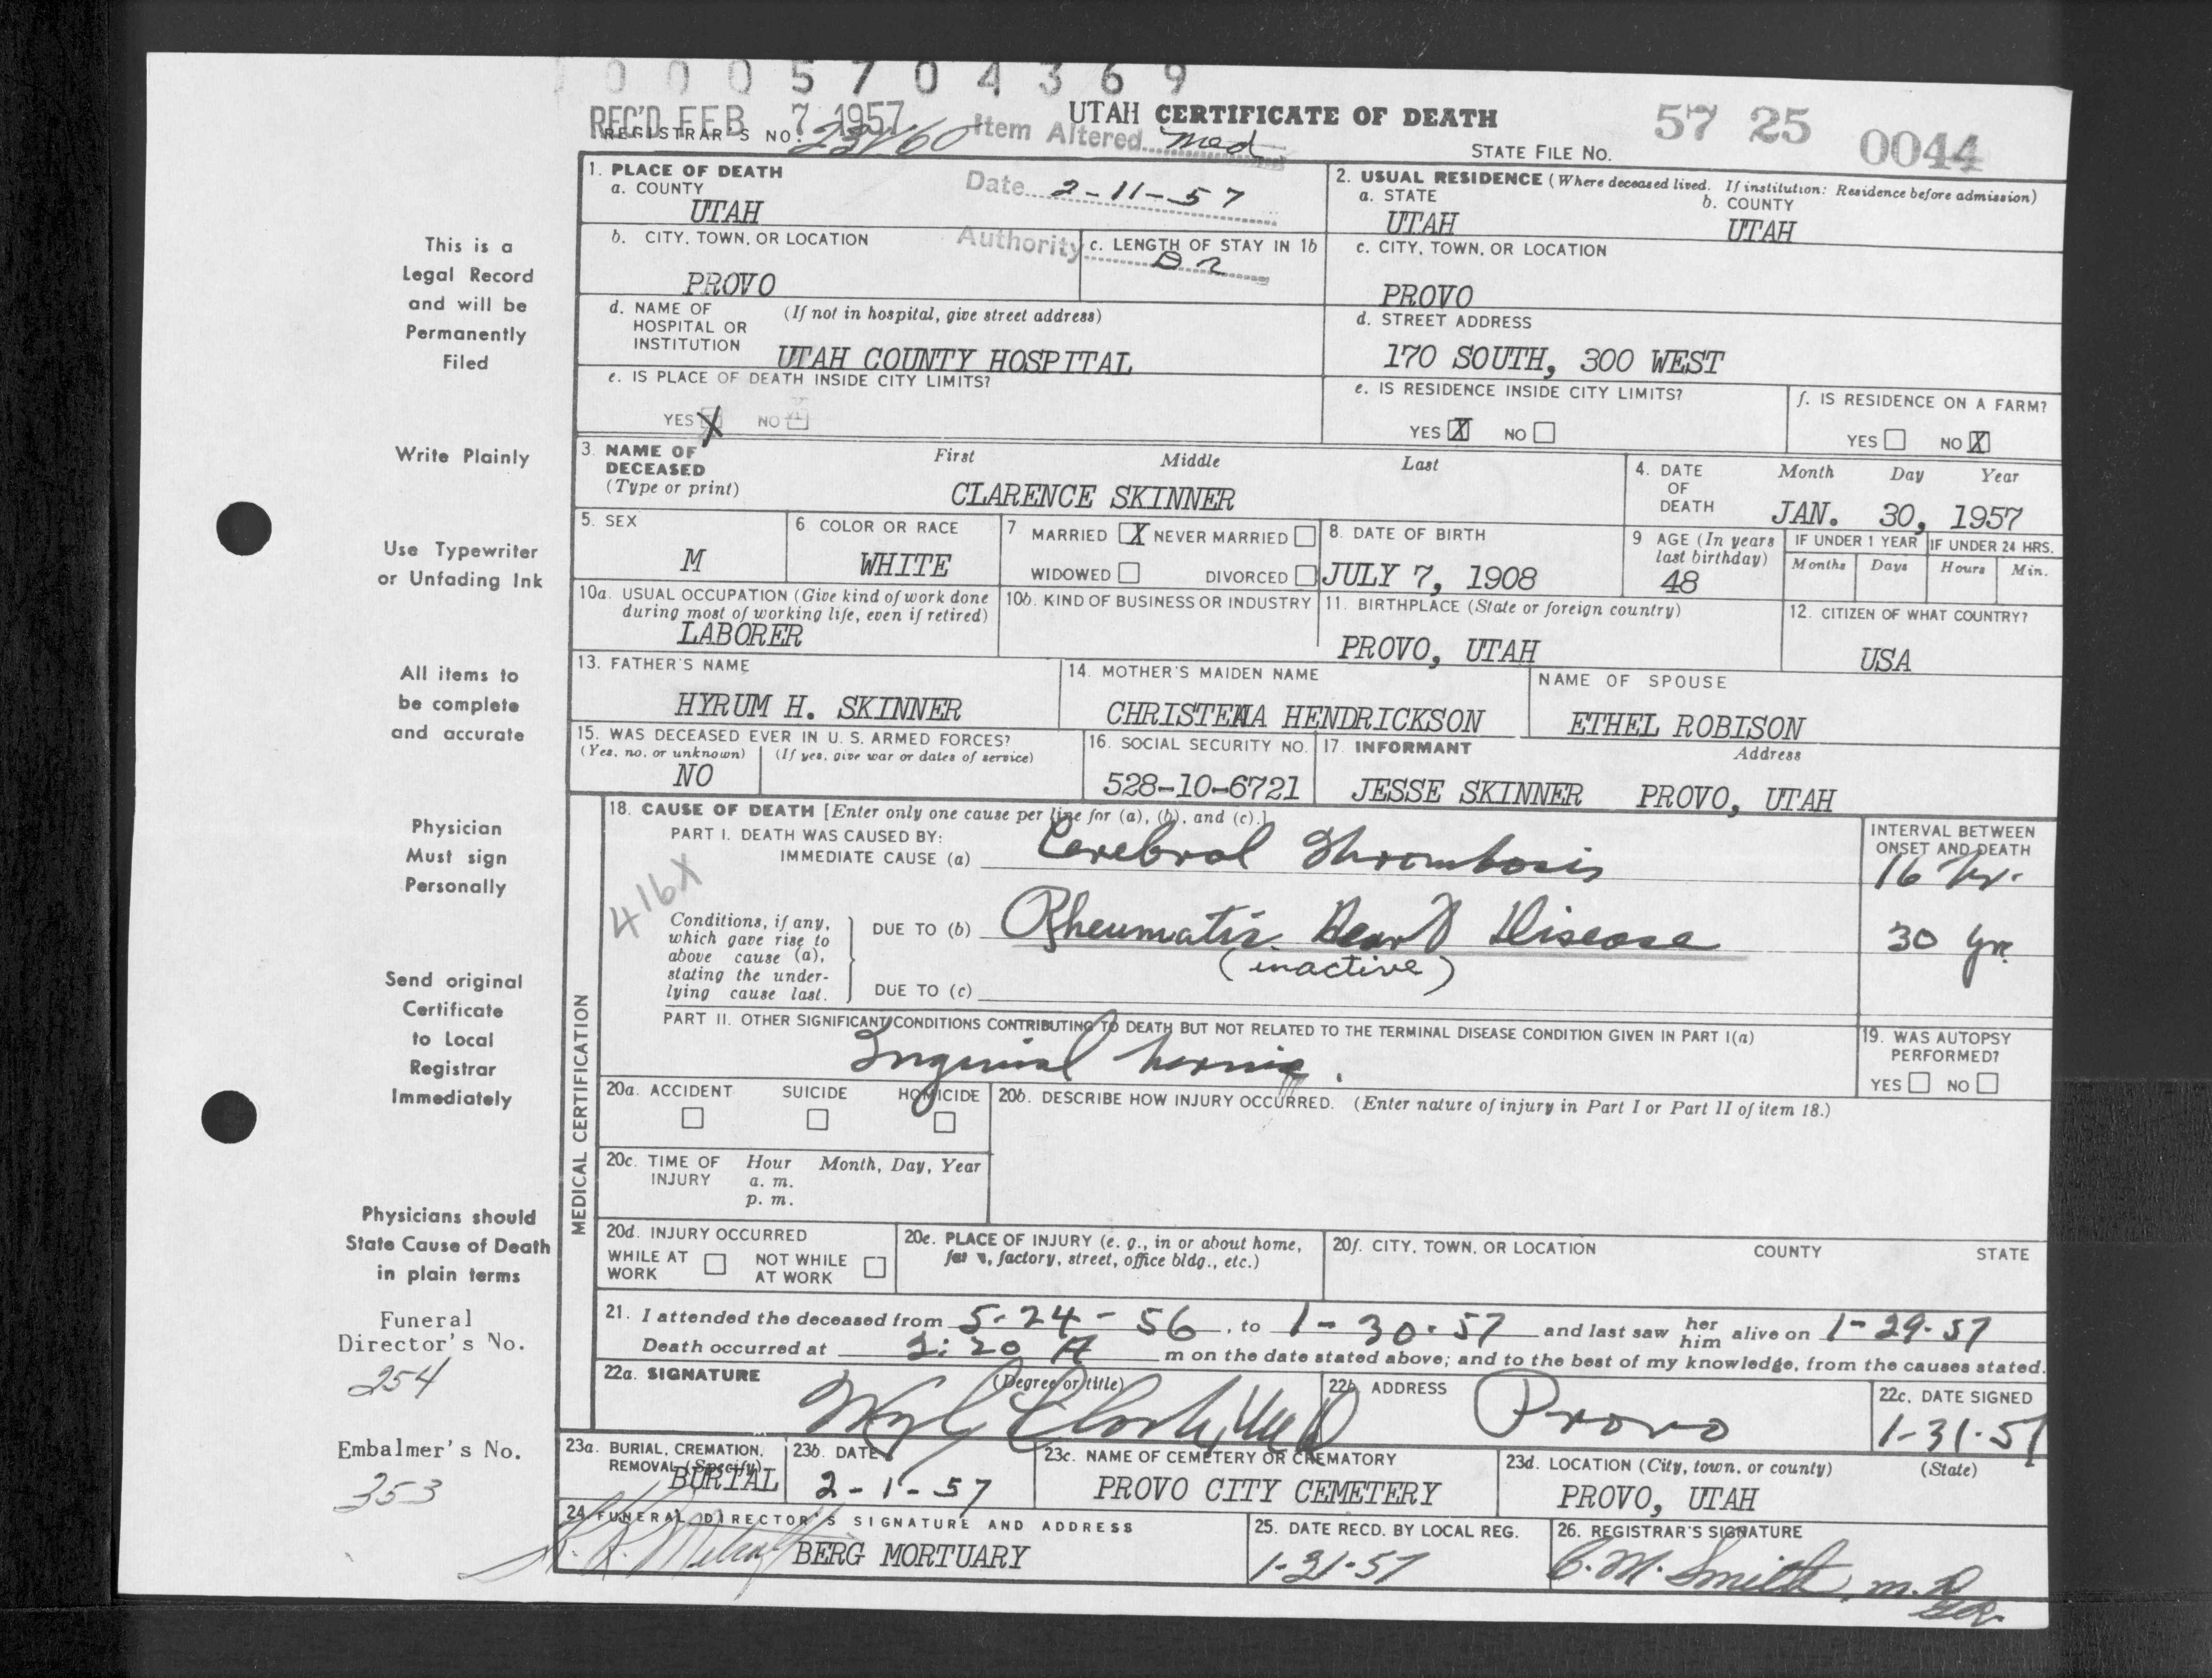 0005704369
REC'D FEB 7 1957
UTAH CERTIFICATE OF DEATH
57 25 0044
REGISTRAR'S NO. 23/60
Item Altered Med
STATE FILE NO.
1. PLACE OF DEATH
a. COUNTY
UTAH
Date 2-11-57
2. USUAL RESIDENCE (Where deceased lived. If institution: Residence before admission)
a. STATE
UTAH
b. COUNTY
UTAH
b. CITY, TOWN, OR LOCATION
PROVO
Authority
c. LENGTH OF STAY IN 1b
c. CITY, TOWN, OR LOCATION
PROVO
d. NAME OF HOSPITAL OR INSTITUTION
(If not in hospital, give street address)
UTAH COUNTY HOSPITAL
d. STREET ADDRESS
170 SOUTH, 300 WEST
e. IS PLACE OF DEATH INSIDE CITY LIMITS?
YES X NO
e. IS RESIDENCE INSIDE CITY LIMITS?
YES X NO
f. IS RESIDENCE ON A FARM?
YES NO X
3. NAME OF DECEASED (Type or print)
First Middle Last
CLARENCE SKINNER
4. DATE OF DEATH
Month Day Year
JAN. 30, 1957
5. SEX
M
6. COLOR OR RACE
WHITE
7 MARRIED X NEVER MARRIED
WIDOWED DIVORCED
8. DATE OF BIRTH
JULY 7, 1908
9 AGE (In years last birthday)
48
IF UNDER 1 YEAR
Months Days
IF UNDER 24 HRS.
Hours Min.
10a. USUAL OCCUPATION (Give kind of work done during most of working life, even if retired)
LABORER
10b. KIND OF BUSINESS OR INDUSTRY
11. BIRTHPLACE (State or foreign country)
PROVO, UTAH
12. CITIZEN OF WHAT COUNTRY?
USA
13. FATHER'S NAME
HYRUM H. SKINNER
14. MOTHER'S MAIDEN NAME
CHRISTENA HENDRICKSON
NAME OF SPOUSE
ETHEL ROBISON
15. WAS DECEASED EVER IN U. S. ARMED FORCES?
(Yes, no, or unknown) (If yes, give war or dates of service)
NO
16. SOCIAL SECURITY NO.
528-10-6721
17. INFORMANT
Address
JESSE SKINNER PROVO, UTAH
18. CAUSE OF DEATH [Enter only one cause per line for (a), (b), and (c).]
PART I. DEATH WAS CAUSED BY:
IMMEDIATE CAUSE (a) Cerebral Thrombosis
INTERVAL BETWEEN ONSET AND DEATH
16 hr.
416X
Conditions, if any, which gave rise to above cause (a), stating the underlying cause last.
DUE TO (b) Rheumatic Heart Disease
(inactive)
30 yr.
DUE TO (c)
PART II. OTHER SIGNIFICANT CONDITIONS CONTRIBUTING TO DEATH BUT NOT RELATED TO THE TERMINAL DISEASE CONDITION GIVEN IN PART I(a)
Inguinal hernia.
19. WAS AUTOPSY PERFORMED?
YES NO
MEDICAL CERTIFICATION
20a. ACCIDENT SUICIDE HOMICIDE
20b. DESCRIBE HOW INJURY OCCURRED. (Enter nature of injury in Part I or Part II of item 18.)
20c. TIME OF INJURY
Hour Month, Day, Year
a. m.
p. m.
20d. INJURY OCCURRED
WHILE AT WORK NOT WHILE AT WORK
20e. PLACE OF INJURY (e. g., in or about home, factory, street, office bldg., etc.)
20f. CITY, TOWN, OR LOCATION COUNTY STATE
21. I attended the deceased from 5-24-56, to 1-30-57 and last saw her him alive on 1-29-57
Death occurred at 2:20 A m on the date stated above; and to the best of my knowledge, from the causes stated.
22a. SIGNATURE
(Degree or title)
22b. ADDRESS
Provo
22c. DATE SIGNED
1-31-57
23a. BURIAL, CREMATION, REMOVAL (Specify)
BURIAL
23b. DATE
2-1-57
23c. NAME OF CEMETERY OR CREMATORY
PROVO CITY CEMETERY
23d. LOCATION (City, town, or county) (State)
PROVO, UTAH
24. FUNERAL DIRECTOR'S SIGNATURE AND ADDRESS
BERG MORTUARY
25. DATE RECD. BY LOCAL REG.
1-31-57
26. REGISTRAR'S SIGNATURE
C. M. Smith, M. D.
This is a
Legal Record
and will be
Permanently
Filed
Write Plainly
Use Typewriter
or Unfading Ink
All items to
be complete
and accurate
Physician
Must sign
Personally
Send original
Certificate
to Local
Registrar
Immediately
Physicians should
State Cause of Death
in plain terms
Funeral
Director's No.
254
Embalmer's No.
353